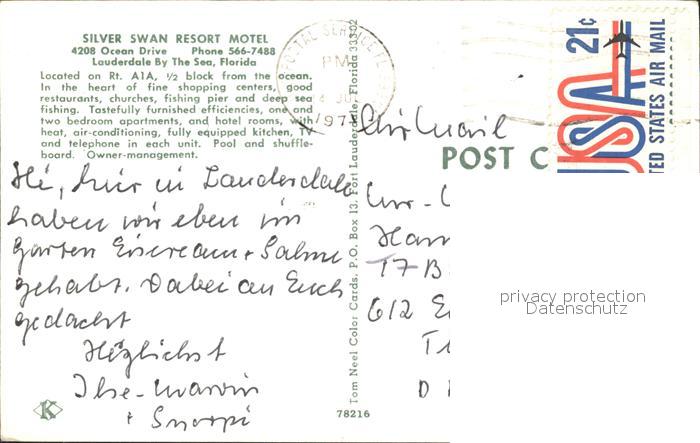 SILVER SWAN RESORT MOTEL
4208 Ocean Drive Phone 566-7488
Lauderdale By The Sea, Florida
Located on Rt. A1A, ½ block from the ocean.
In the heart of fine shopping centers, good
restaurants, churches, fishing pier and deep sea
fishing. Tastefully furnished efficiencies, one and
two bedroom apartments, and hotel rooms, with
heat, air-conditioning, fully equipped kitchen, TV
and telephone in each unit. Pool and shuffle-
board. Owner-management.
Hi, hier in Lauderdale
haben wir eben im
Garten Eiscream + Sahne
gehabt. Dabei an Euch
gedacht
Herzlichst
Ilse-Marvin
+ Snoopi
K
78216
Tom Neel Color Cards, P.O. Box 13, Fort Lauderdale, Florida 33302
POSTAL SERVICE
PM
197
21c
USA
UNITED STATES AIR MAIL
Air Mail
POST C
Ham
T7 B
612 E
D
privacy protection
Datenschutz